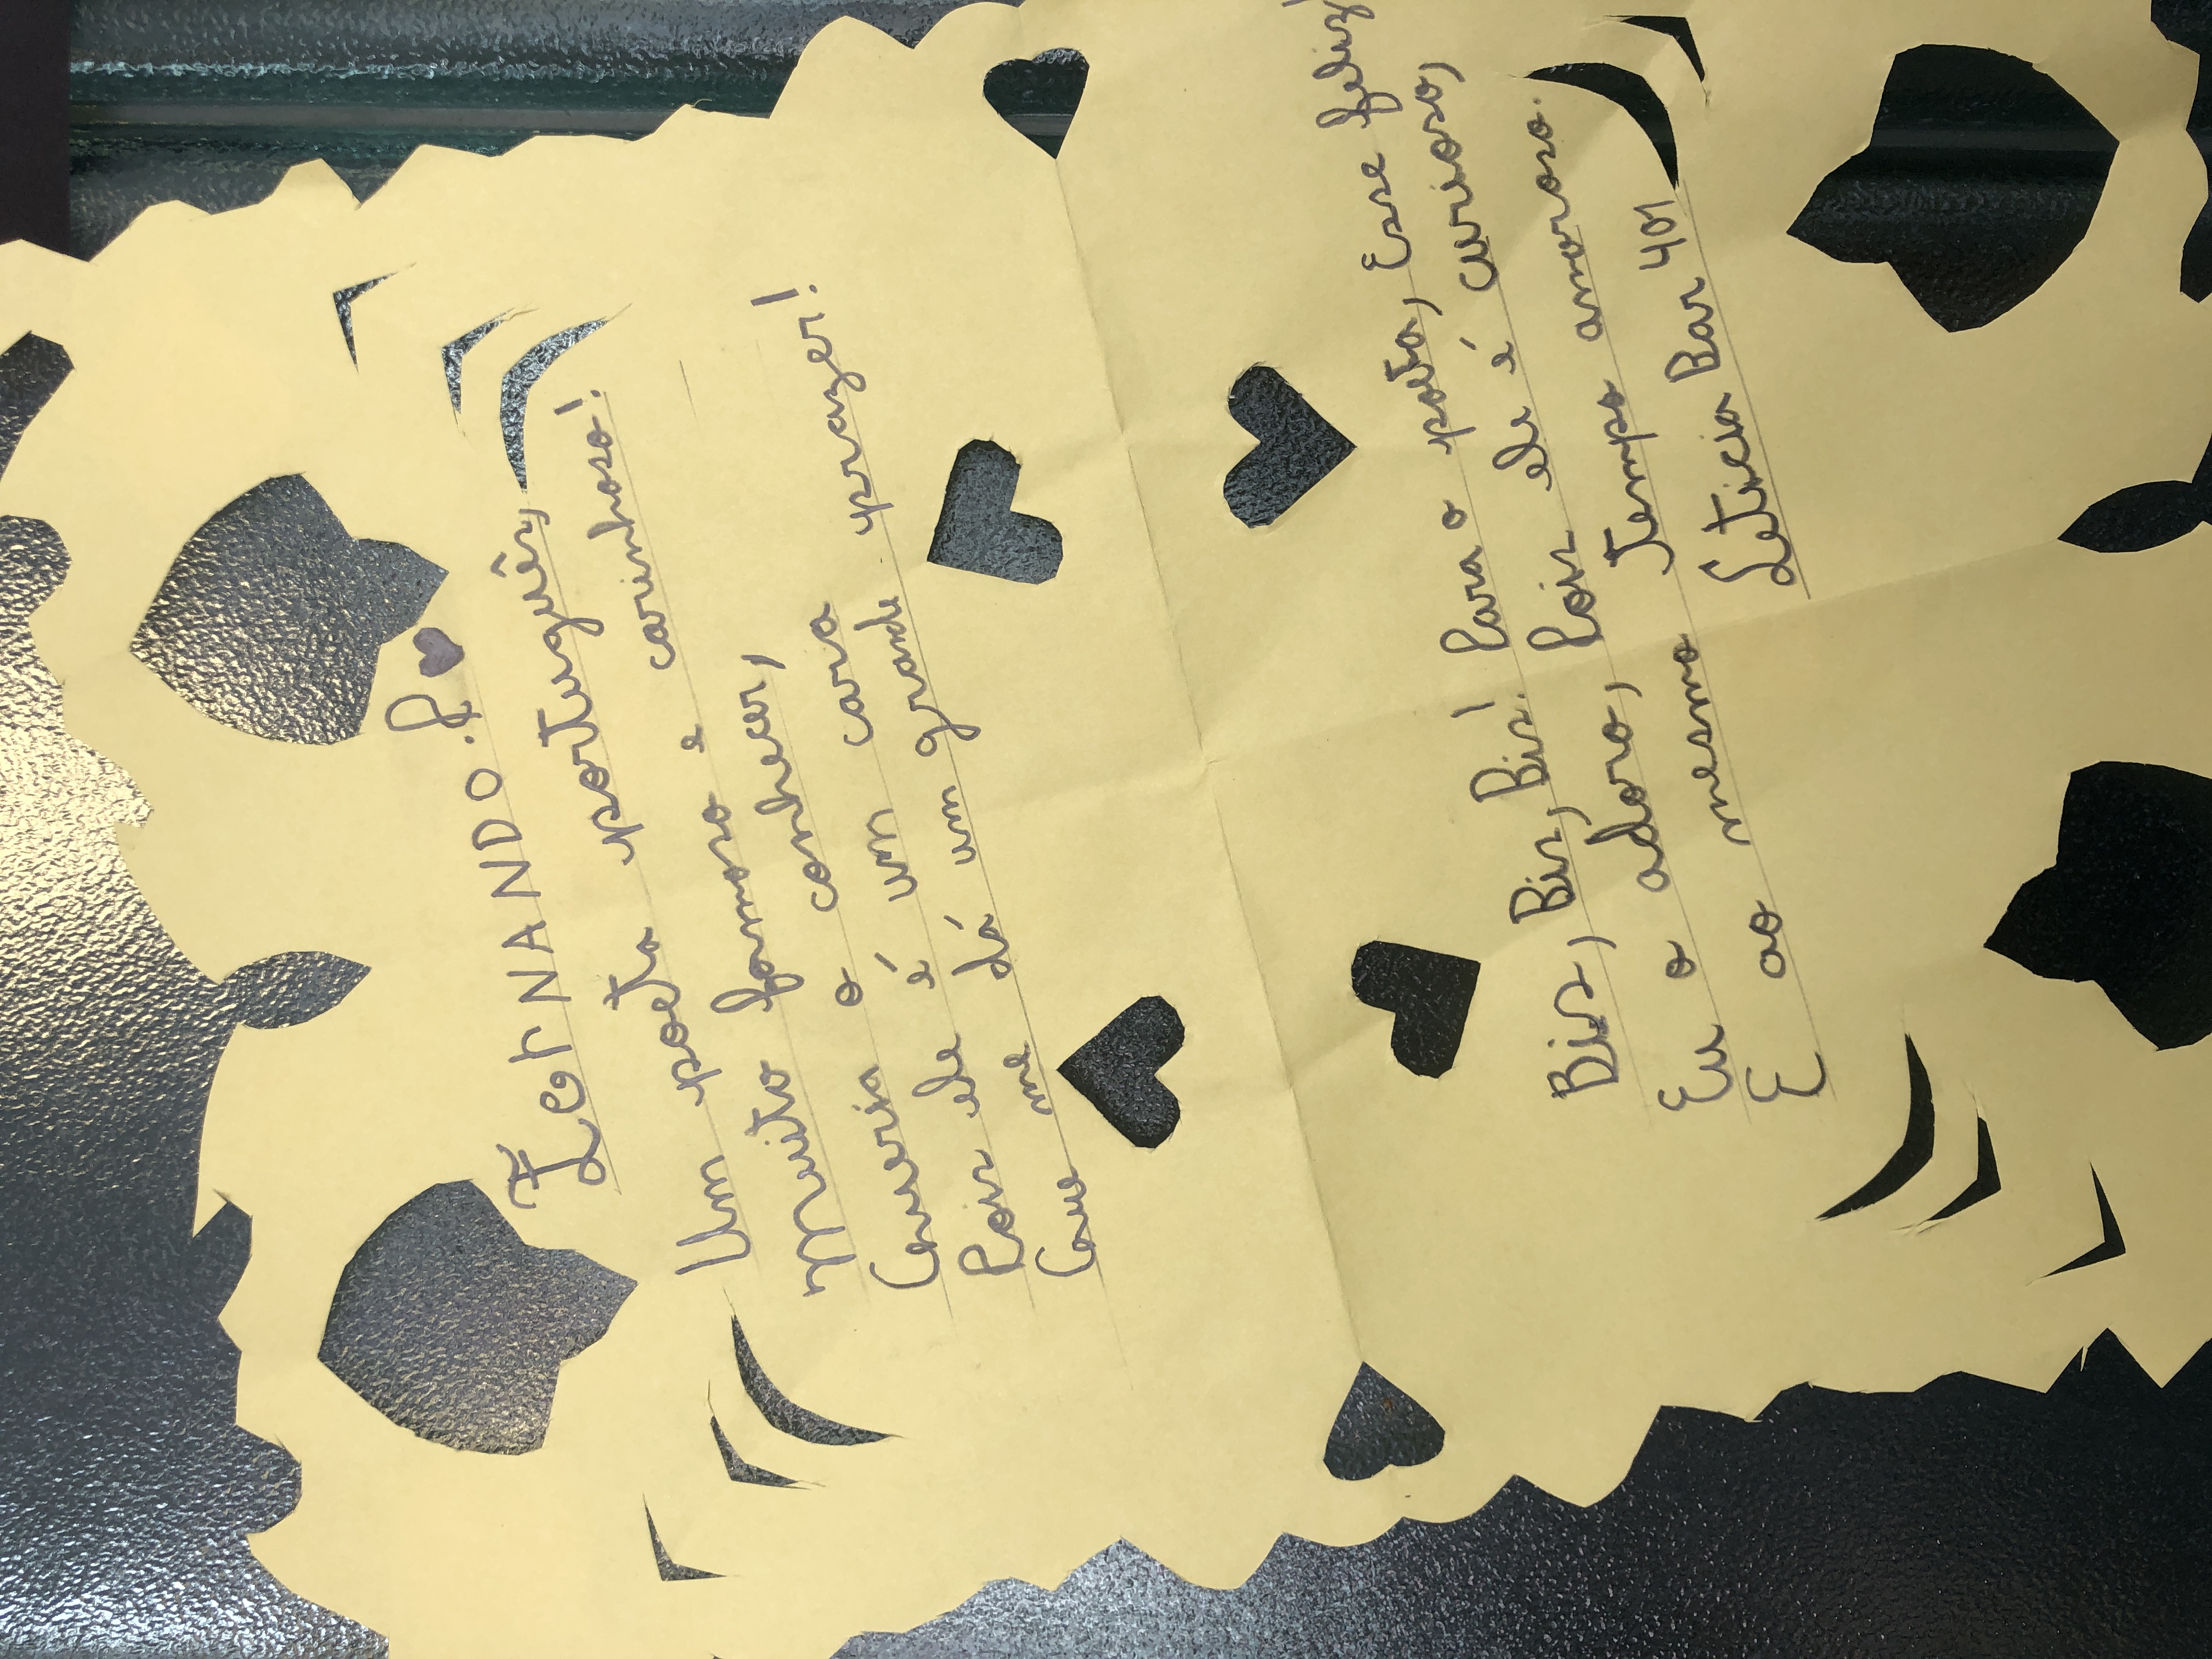 FerNANDO.P
Um poeta português,
Muito famoso e carinhoso!
Queria o conhecer,
Pois ele é um cara
Que me dá um grande prazer!
Bis, Bis, Bis! Para o poeta, Esse feliz!
Eu o adoro, Pois ele é curioso,
E ao mesmo Tempo amoroso.
Leticia Bar 401